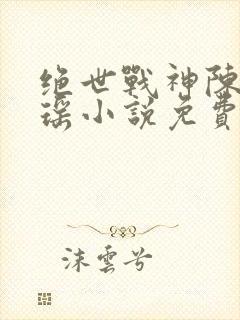 绝世戰神陳
瑶小說免費
沫雲兮